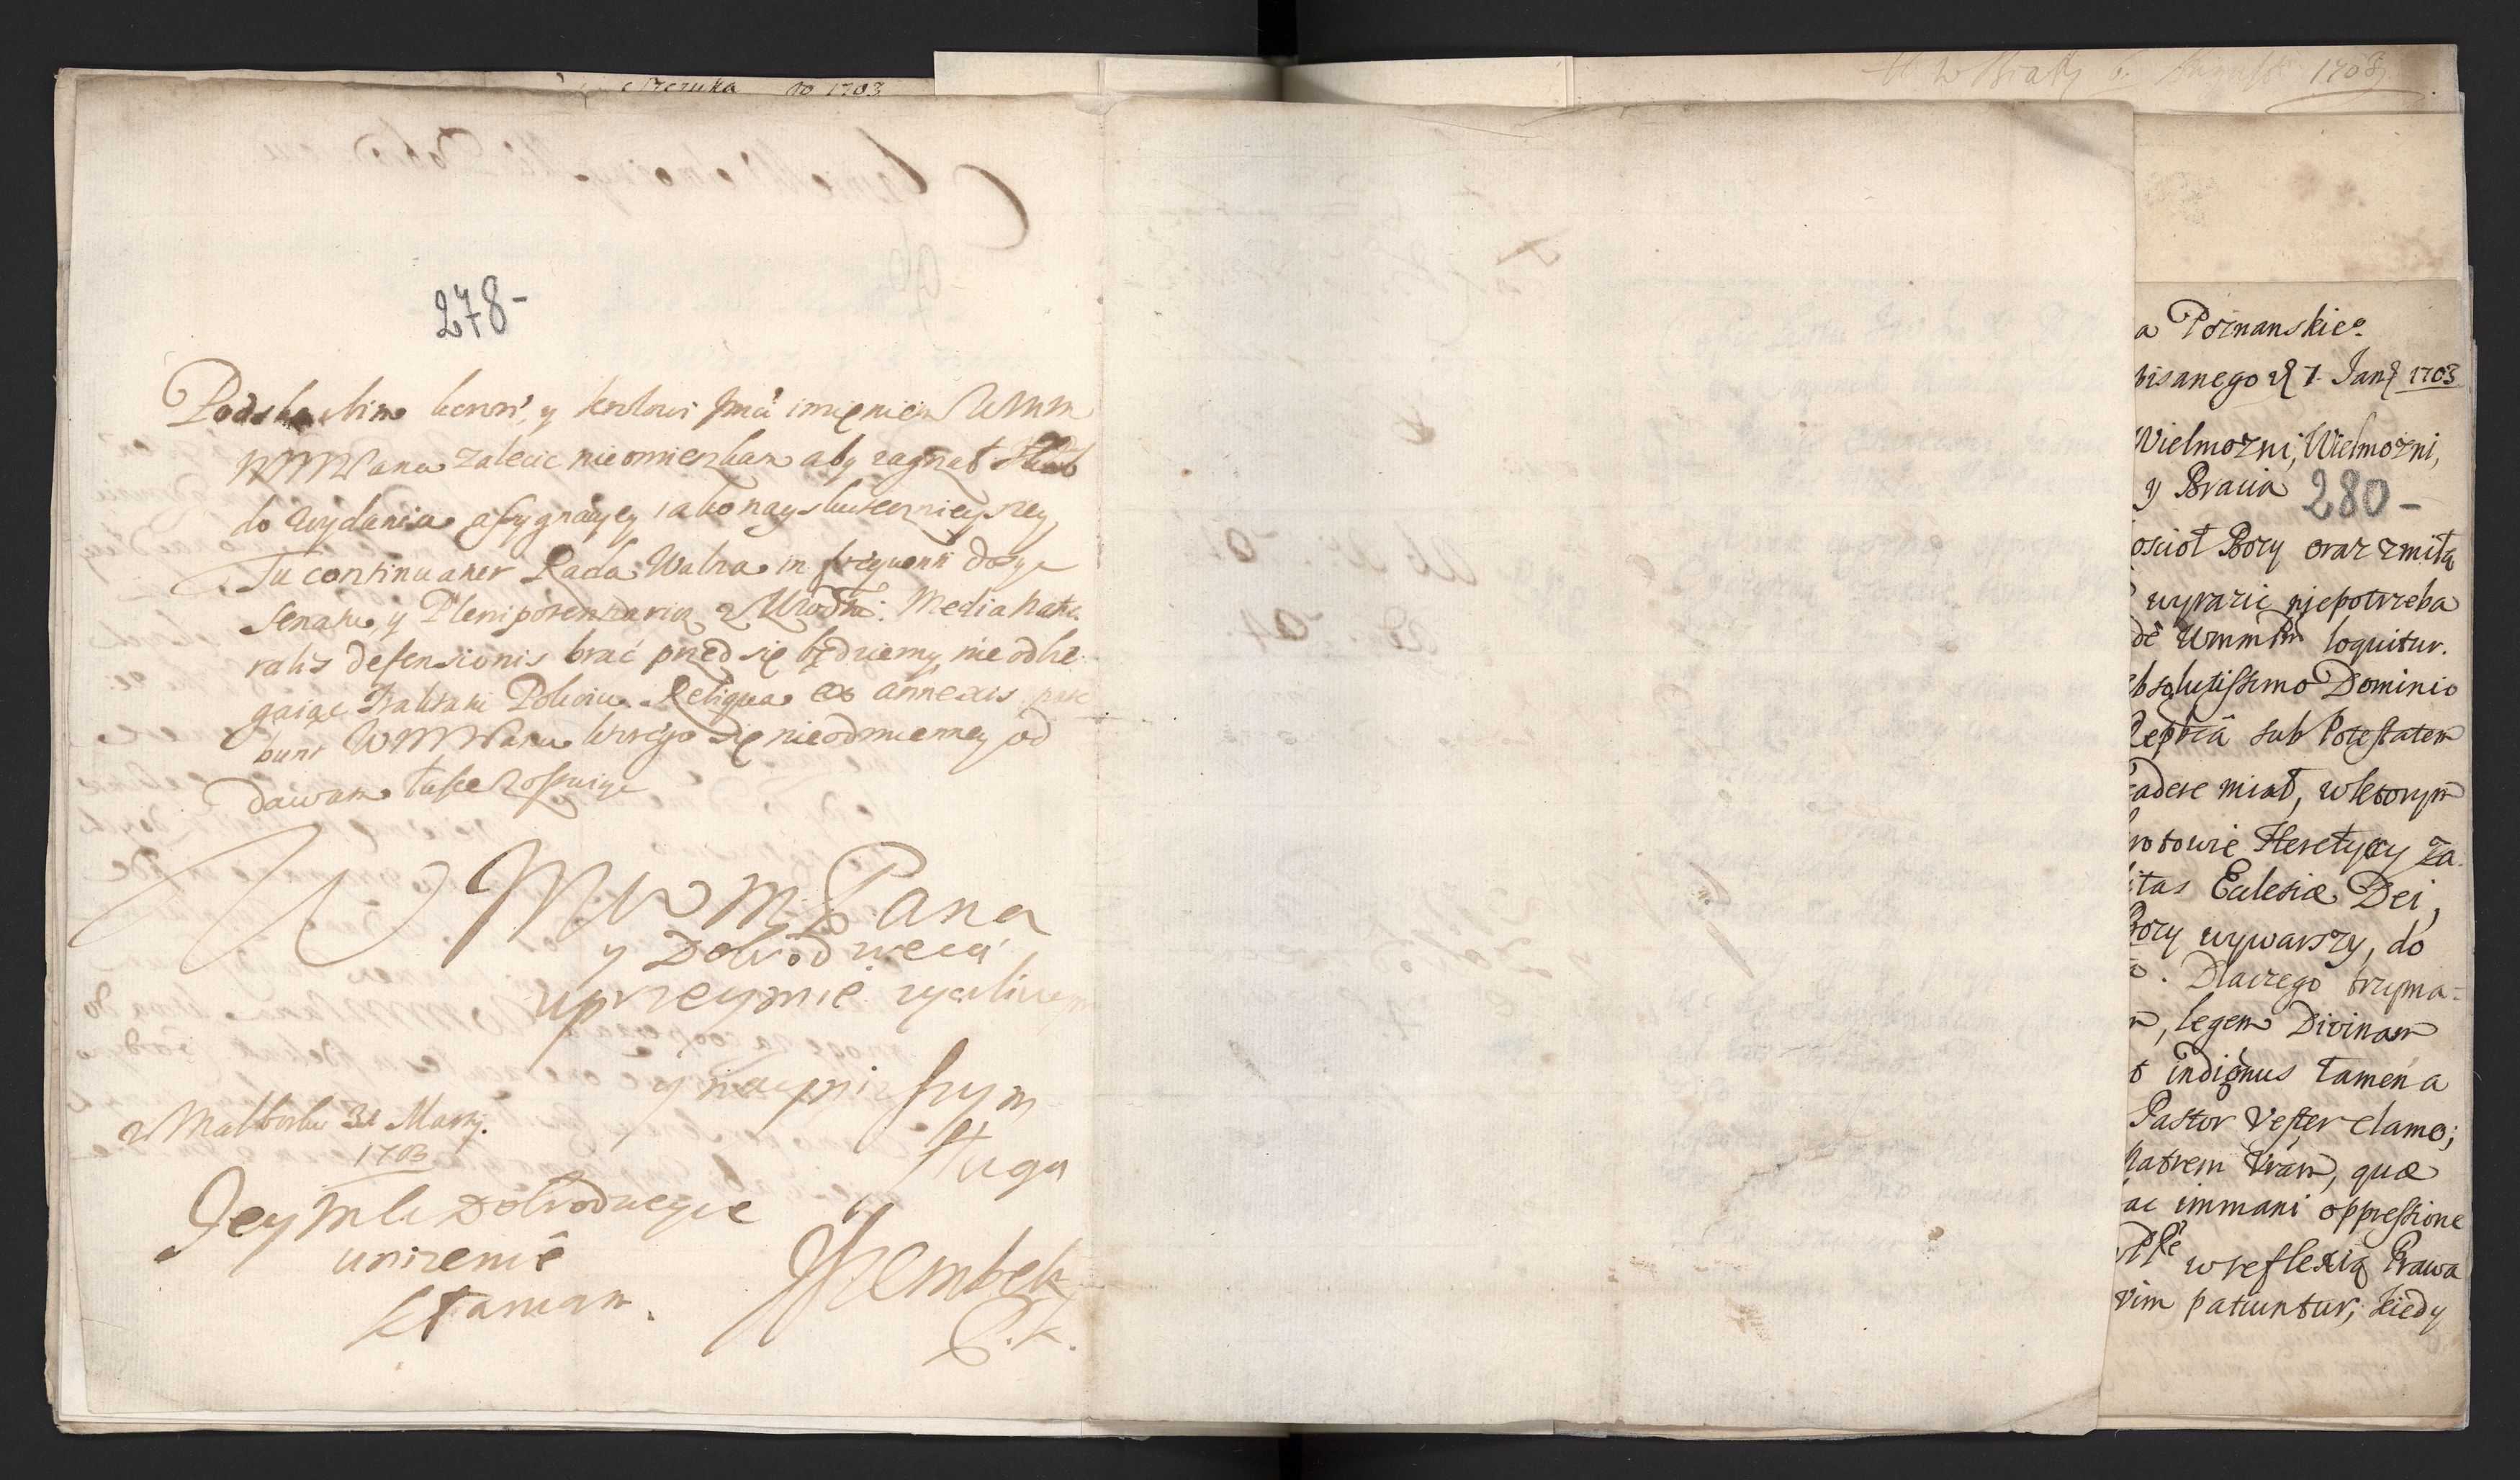 Szczuka 1703
1703
278-
y Imci imięniem WMM
WMMPana zalecic nieomieszkam aby zagrzał
do wydania assygnacyey iako nayskutecznieyszey,
Tu continuatur Rada Walna in frequenti dosyc
Senatu, y Plenipotentariis z Media natu-
ralis defensionis brać przed się będziemy, nie odbe-
gaiąc Traktatu Pokoiu. Reliqua ex annexis pate
bunt WMMPanu ktorego się nieodmienney od
dawam łasce zostaiąc
WMMWMPana
y Dobrodzieia
uprzeymie zyczliwym
y naypni szym
sługą
z Malborku 31 Marty.
1703
Jey Mci Dobrodzieyce
unizenie
kłaniam.
JSzembek
P.K.
a Poznanskieo
pisanego d 7. Jan 1703
Wielmozni, Wielmozni,
y Bracia
280-
osciol Bozy oraz zmiłą
wyrazic niepotrzeba
de WmmPm loquitur.
bsolutissimo Dominio
Repbcā sub Potestatem
cadere miał, wktorym
rotowie Heretycy za-
itas Eclesiæ Dei,
Bozy wywarszy, do
. Dlaczego trzyma-
m, legem Divinam
t indignus tamen a
Pastor Vester clamo;
Matrem Vram, quæ
ac immani oppressione
wreflexią Prawa
vim patiuntur; kiedy